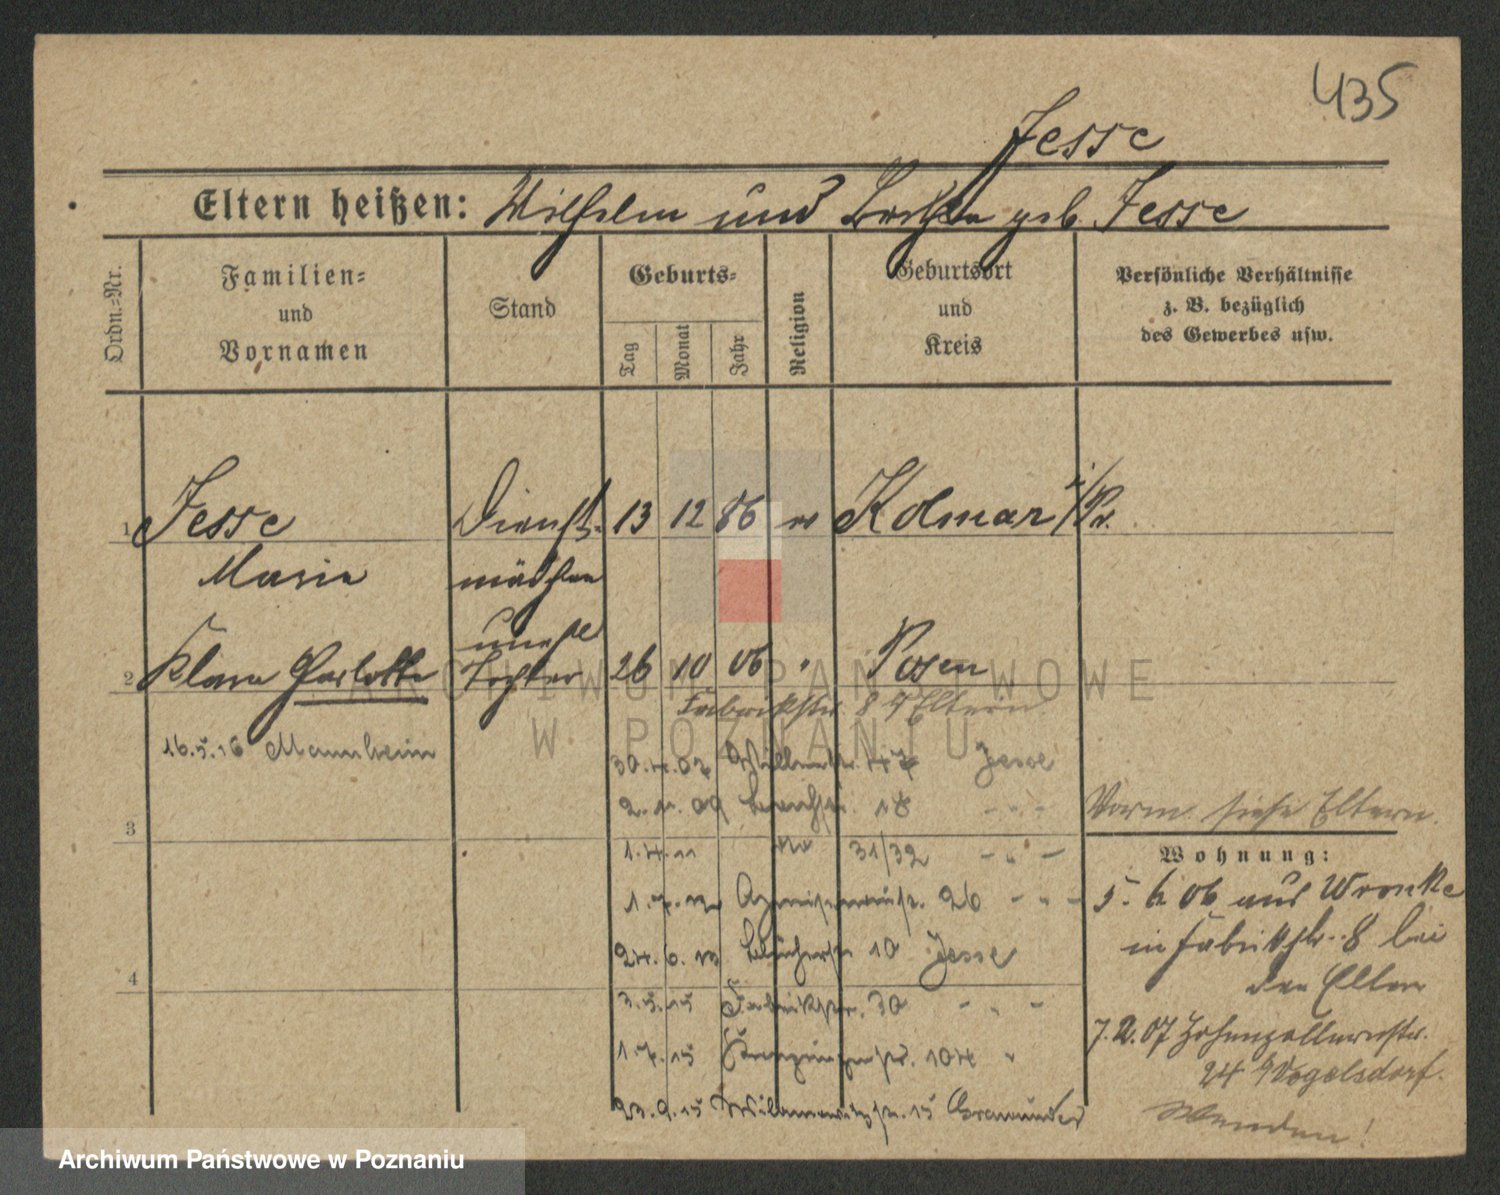 435
Jesse
Eltern heißen: Wilhelm und geb. Jesse
Ordn.-Nr.
Familien-
und
Vornamen
Stand
Geburts-
Tag
Monat
Jahr
Religion
Geburtsort
und
Kreis
Persönliche Verhältnisse
z. B. bezüglich
des Gewerbes usw.
1 Jesse Dienst- 13 12 86 ev Kolmar i/Pr.
Marie mädchen
unehel
2 Klara Charlotte Tochter 26 10 06 " Posen
Fabrikstr. 8 b/Eltern
16.5.16 Mannheim
30.4.07 47 Jesse
2.11.09 18 - " -
Vorm. siehe Eltern.
3
1.4.11 31/32 - " -
Wohnung:
1.7.12 26 - " -
5. 6. 06 aus Wronke
in Fabrikstr. 8 bei
24.6.13 Blücherstr 10 Jesse
den Eltern
4
3.5.15 Fabrikstr. 30 - " -
7.2.07 Hohenzollernstr.
1.7.15 104 "
24 b/Vogelsdorf.
23.9.15 15
Wenden!
ARCHIWUM PAŃSTWOWE
W POZNANIU
Archiwum Państwowe w Poznaniu